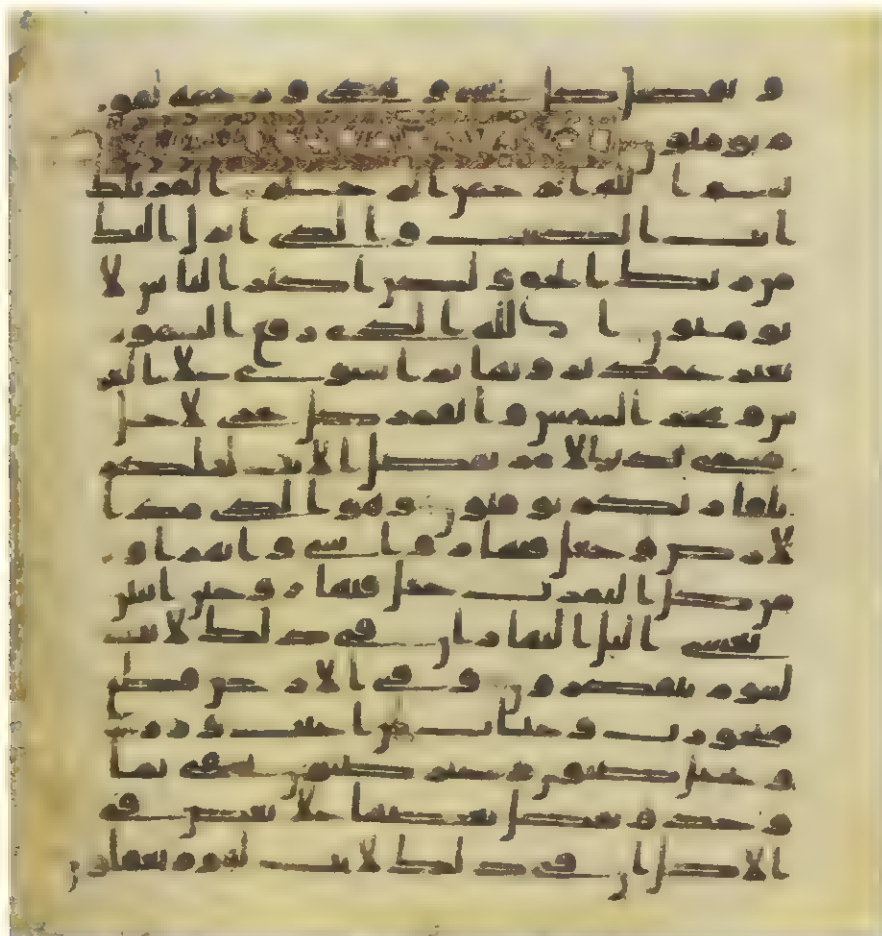 و تفصيل كل شى و هدى و رحمه لقوم
يومنون
بسم الله الرحمن الرحيم المر تلك
ايت الكتب و الذى انزل اليك
من ربك الحق و لكن اكثر الناس لا
يومنون الله الذى رفع السموت
بغير عمد ترونها ثم استوى على العر
ش و سخر الشمس و القمر كل يجرى لاجل
مسمى يدبر الامر يفصل الايت لعلكم
بلقا ربكم توقنون و هو الذى مد ا
لارض و جعل فيها رواسى و انهرا و
من كل الثمرت جعل فيها زوجين اثنين
يغشى اليل النهار ان فى ذلك لايت
لقوم يتفكرون و فى الارض قطع
متجورت و جنات من اعنب و زرع
و نخيل صنون و غير صنون يسقى بما
وحد و نفضل بعضها على بعض فى
الاكل ان فى ذلك لايت لقوم يعقلون